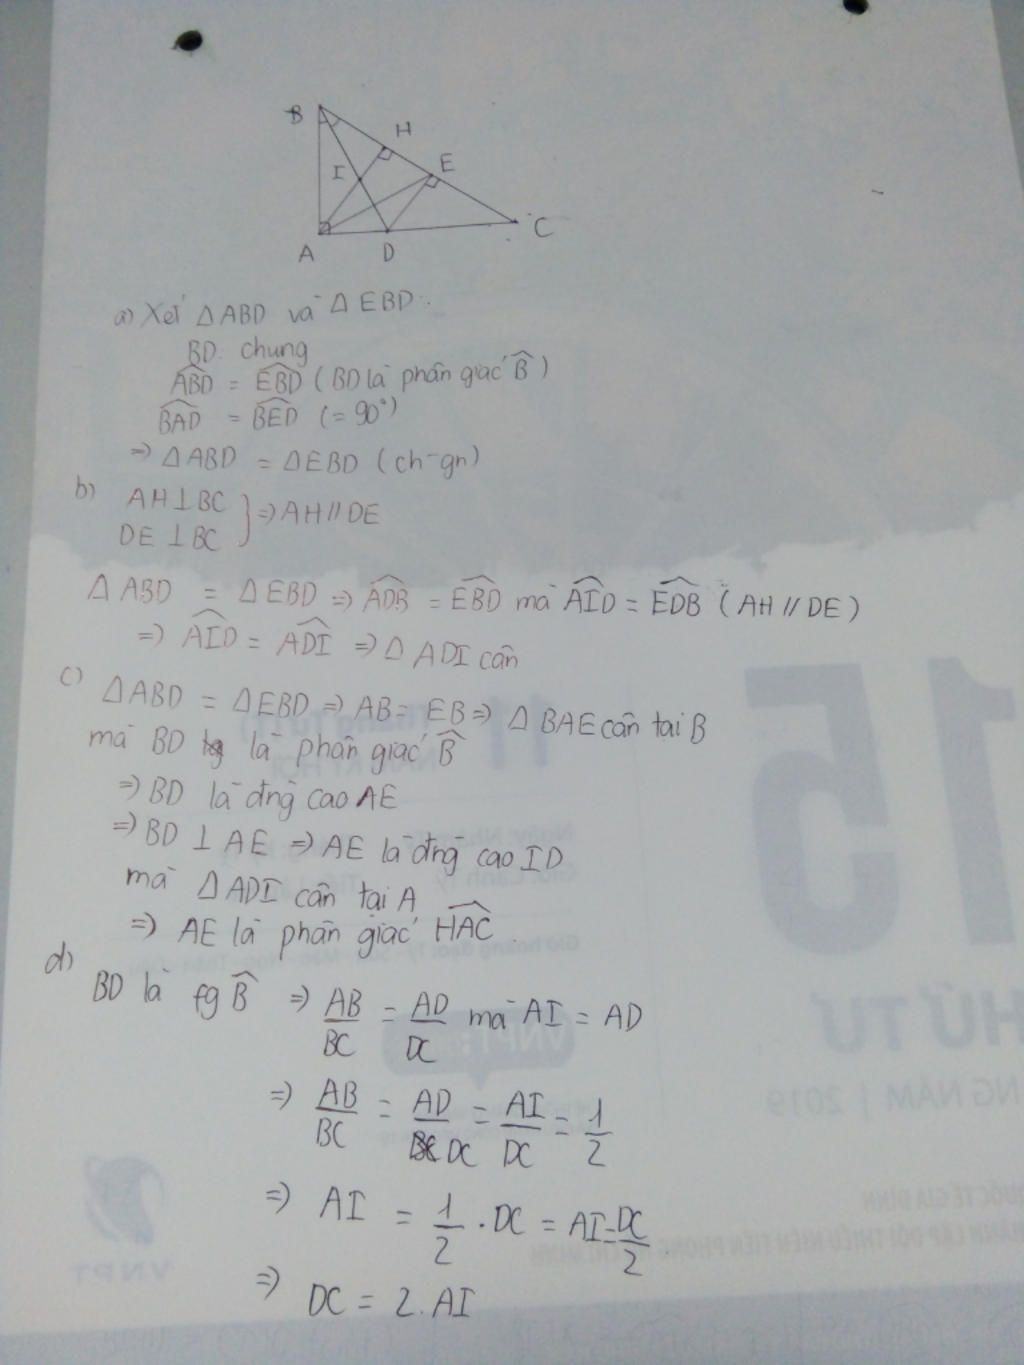 B
H
I
E
A
D
C
a) Xét △ABD và △EBD:
BD: chung
ABD̂ = EBD̂ (BD là phân giác B̂)
BAD̂ = BED̂ (= 90°)
⇒ △ABD = △EBD (ch-gn)
b) AH⊥BC
DE⊥BC } ⇒ AH//DE
△ABD = △EBD ⇒ ADB̂ = EBD̂ mà AID̂ = EDB̂ (AH//DE)
⇒ AID̂ = ADÎ ⇒ △ADI cân
c) △ABD = △EBD ⇒ AB = EB ⇒ △BAE cân tại B
mà BD là phân giác B̂
⇒ BD là đng cao AE
⇒ BD ⊥ AE ⇒ AE là đng cao ID
mà △ADI cân tại A
⇒ AE là phân giác HAĈ
d)
BD là fg B̂ ⇒ AB/BC = AD/DC mà AI = AD
⇒ AB/BC = AD/DC = AI/DC = 1/2
⇒ AI = 1/2 . DC = AI = DC/2
⇒ DC = 2.AI
15
HỨ TƯ
NG NĂM | 2019
VNPT